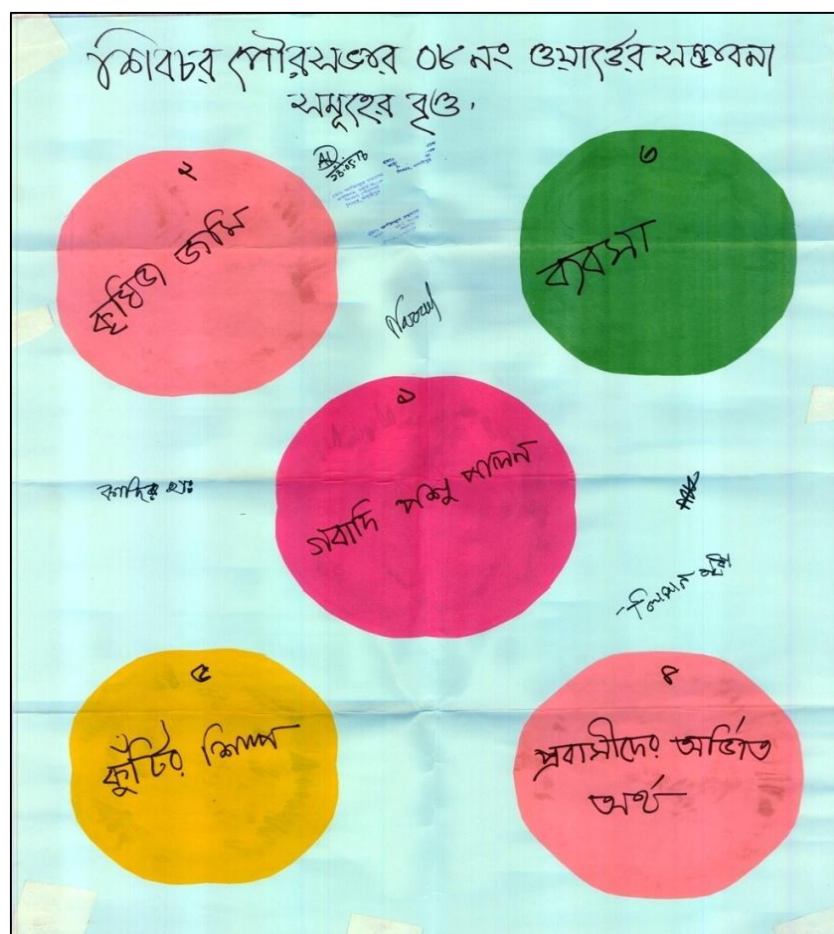 শিবচর পৌরসভার ০৮ নং ওয়ার্ডের সম্ভাবনা
সমূহের বৃত্ত
২
কৃষিজ জমি
৩
ব্যবসা
১
গবাদি পশু পালন
৫
কুঁটির শিল্প
৪
প্রবাসীদের অর্জিত
অর্থ